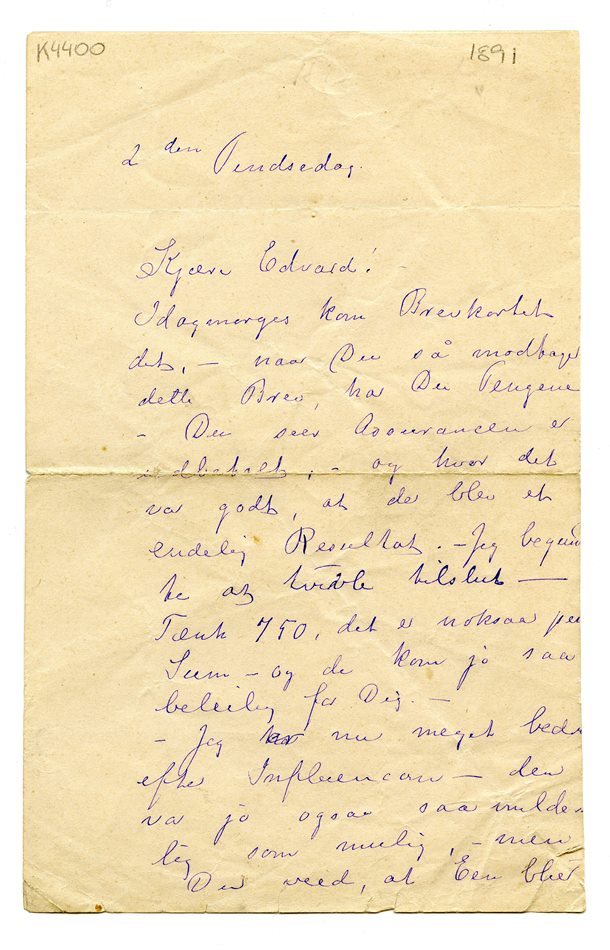 K4400
1891
2 den Pindsedag.
Kjære Edvard!
Idagmorges kom Brevkortet
det, – naar Du så modtager
dette Brev, har Du Pengene
– Du seer Assurancen er
udbetalt, – og hvor det
var godt, at der blev et
endelig Resultat. – Jeg begynd
te at tvivle tilslut –
Tænk 750, det er noksaa pen
Sum – og de kom jo saa
beleilig for Dig. –
– Jeg er nu meget bedre
efter Influencan – den
var jo ogsaa saa mulde
lig som mulig, – men
Du veed, at Een blir